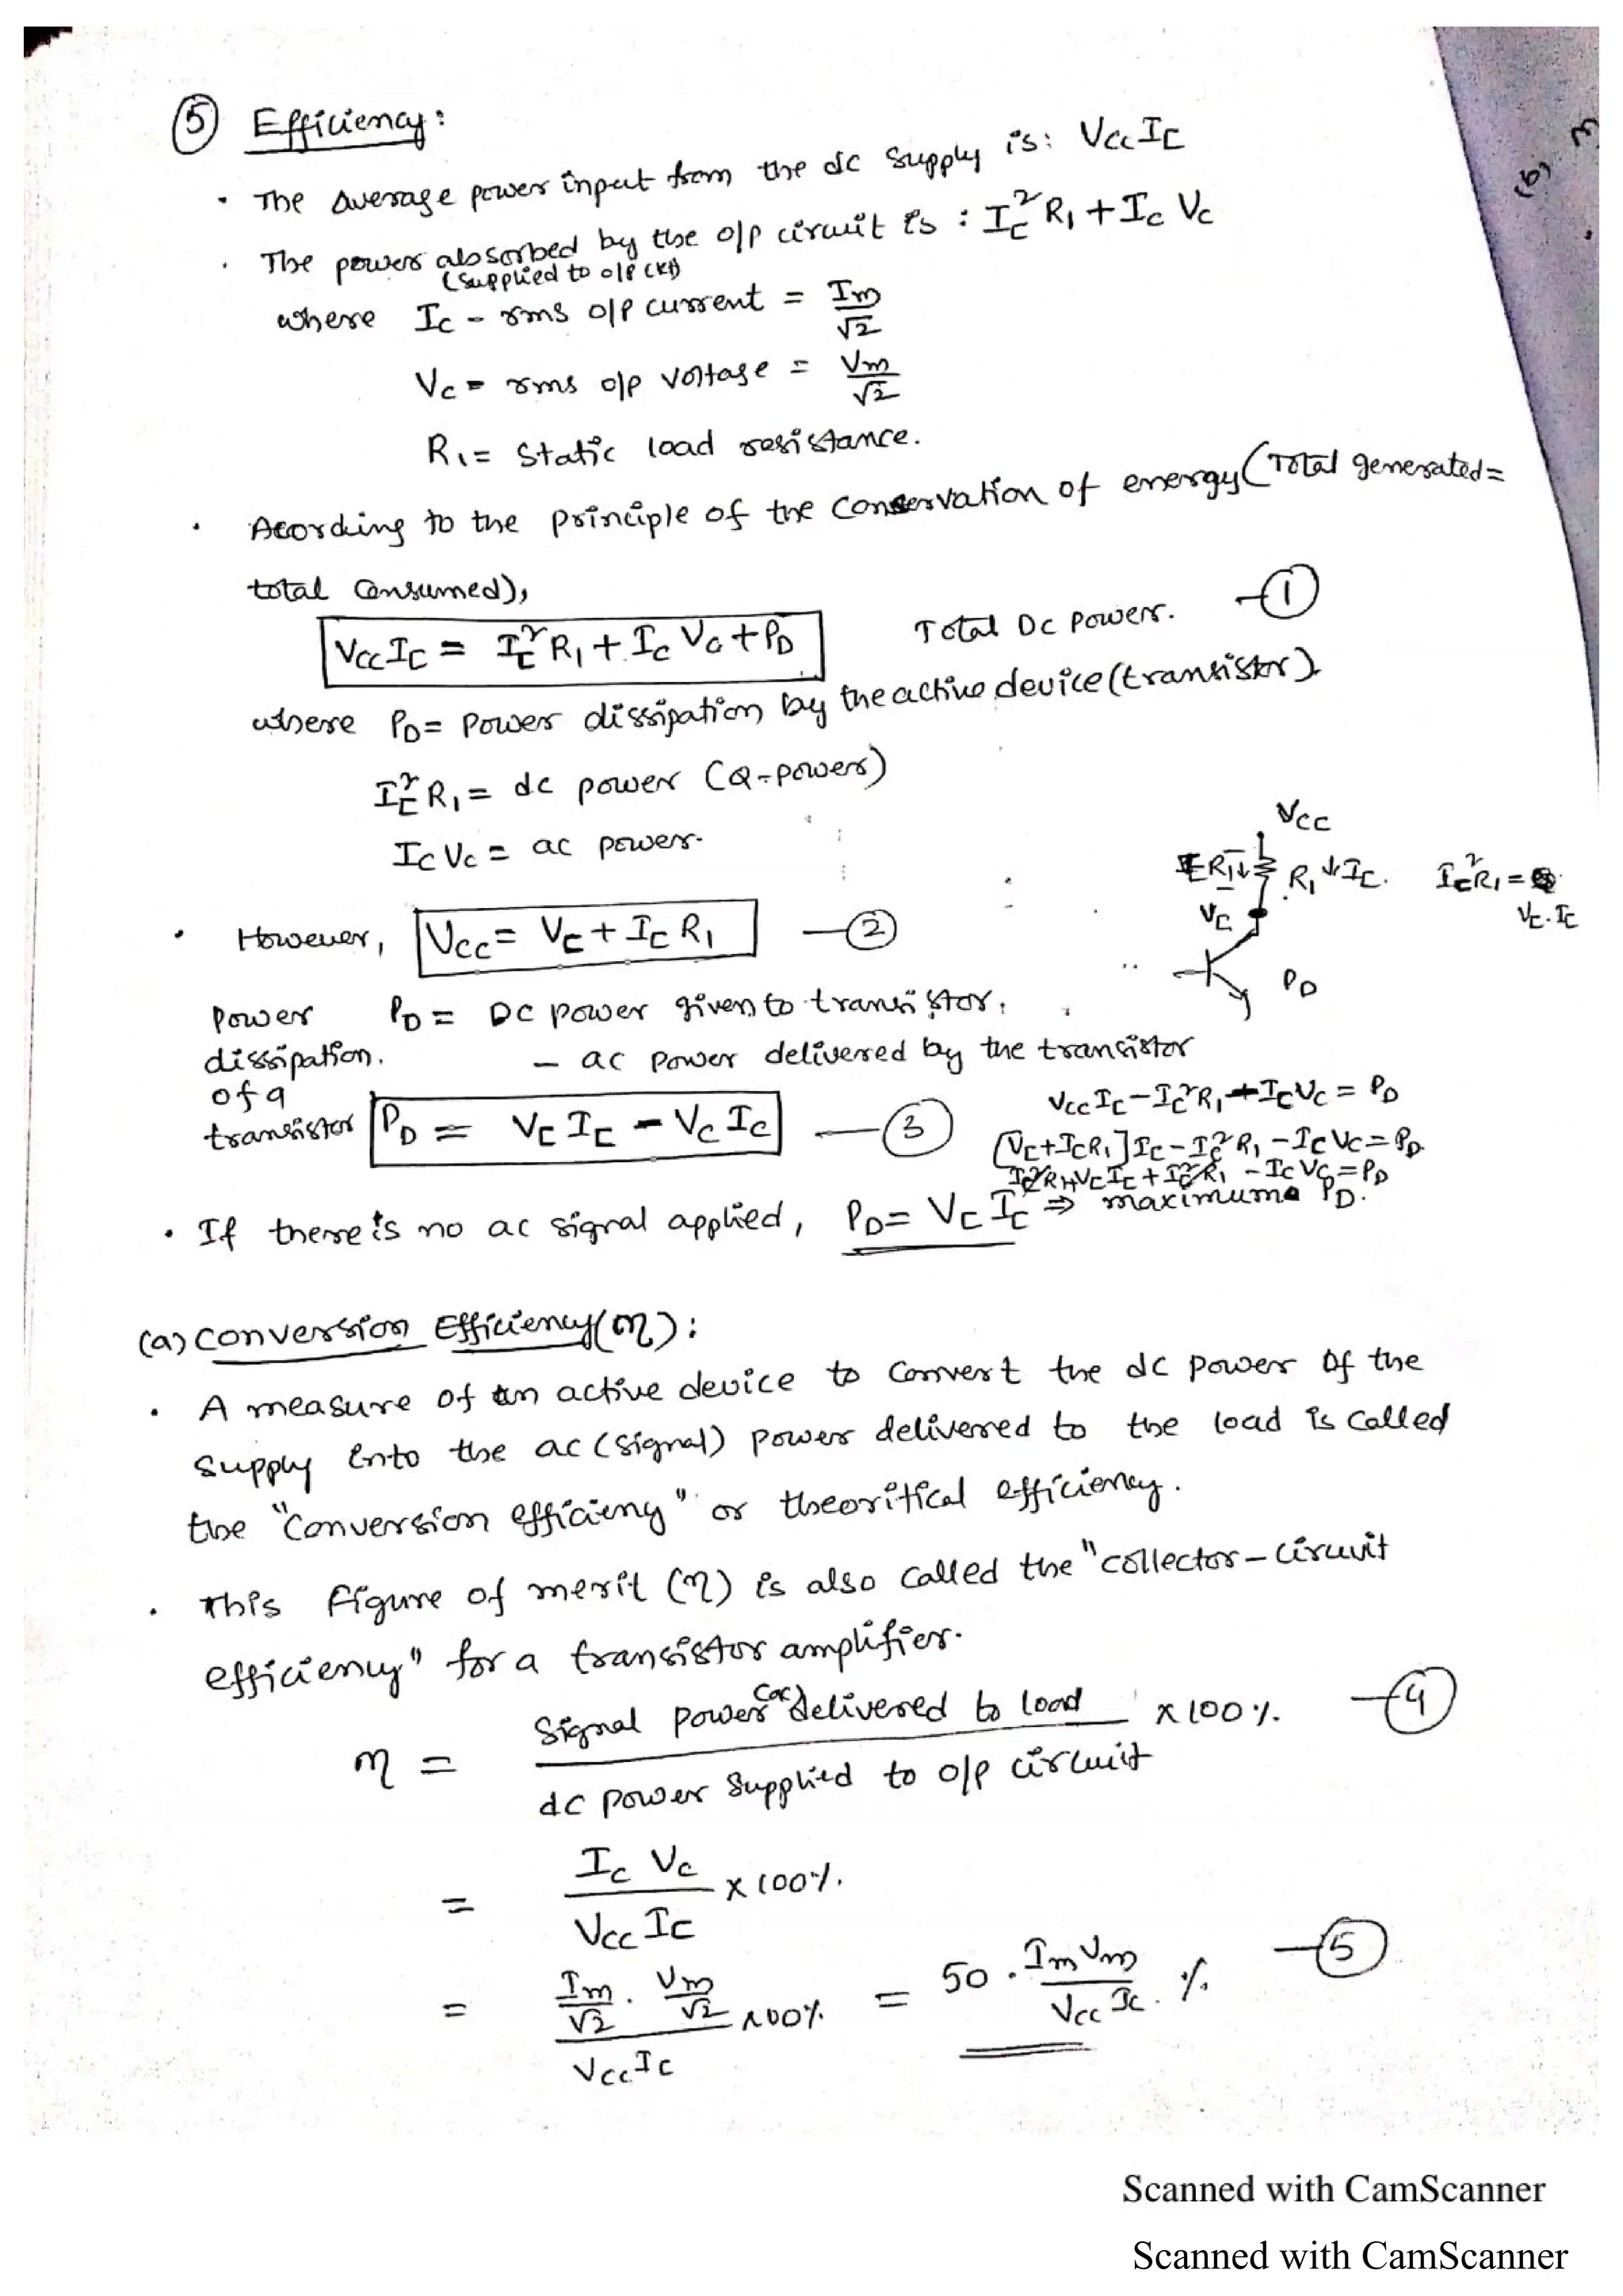 ⑤ Efficiency:
• The Average power input from the dc supply is: Vcc I_C
• The power absorbed by the o/p circuit is : I_C² R₁ + I_c V_c
(supplied to o/p ckt)
where I_c - rms o/p current = Im/√2
V_c = rms o/p voltage = Vm/√2
R₁ = static load resistance.
• Acording to the principle of the conservation of energy (Total generated =
total consumed),
Vcc I_C = I_C² R₁ + I_c V_c + P_D Total DC power. —①
where P_D = power dissipation by the active device (transistor).
I_C² R₁ = dc power (Q-power)
I_c V_c = ac power.
Vcc
R₁ ↓I_C. I_C² R₁ =
V_C V_C . I_C
P_D
• However, Vcc = V_C + I_C R₁ —②
power dissipation. of a transistor
P_D = DC power given to transistor.
- ac power delivered by the transistor
P_D = V_C I_C - V_c I_c —③
Vcc I_C - I_C² R₁ - I_c V_c = P_D
[V_C + I_C R₁] I_C - I_C² R₁ - I_c V_c = P_D
I_C² R₁ + V_C I_C + I_C² R₁ - I_c V_c = P_D
• If there is no ac signal applied, P_D = V_C I_C ⇒ maximum P_D.
(a) Conversion Efficiency (η):
• A measure of an active device to convert the dc power of the
supply into the ac (signal) power delivered to the load is called
the "Conversion efficieny" or theoritical efficiency.
• This figure of merit (η) is also called the "collector-circuit
efficiency" for a transistor amplifier.
η = Signal power (ac) delivered to load / dc power supplied to o/p circuit × 100 %. —④
= I_c V_c / Vcc I_C × 100%.
= Im/√2 . Vm/√2 / Vcc I_C × 100% = 50 . Im Vm / Vcc I_C . % —⑤
(b)
Scanned with CamScanner
Scanned with CamScanner